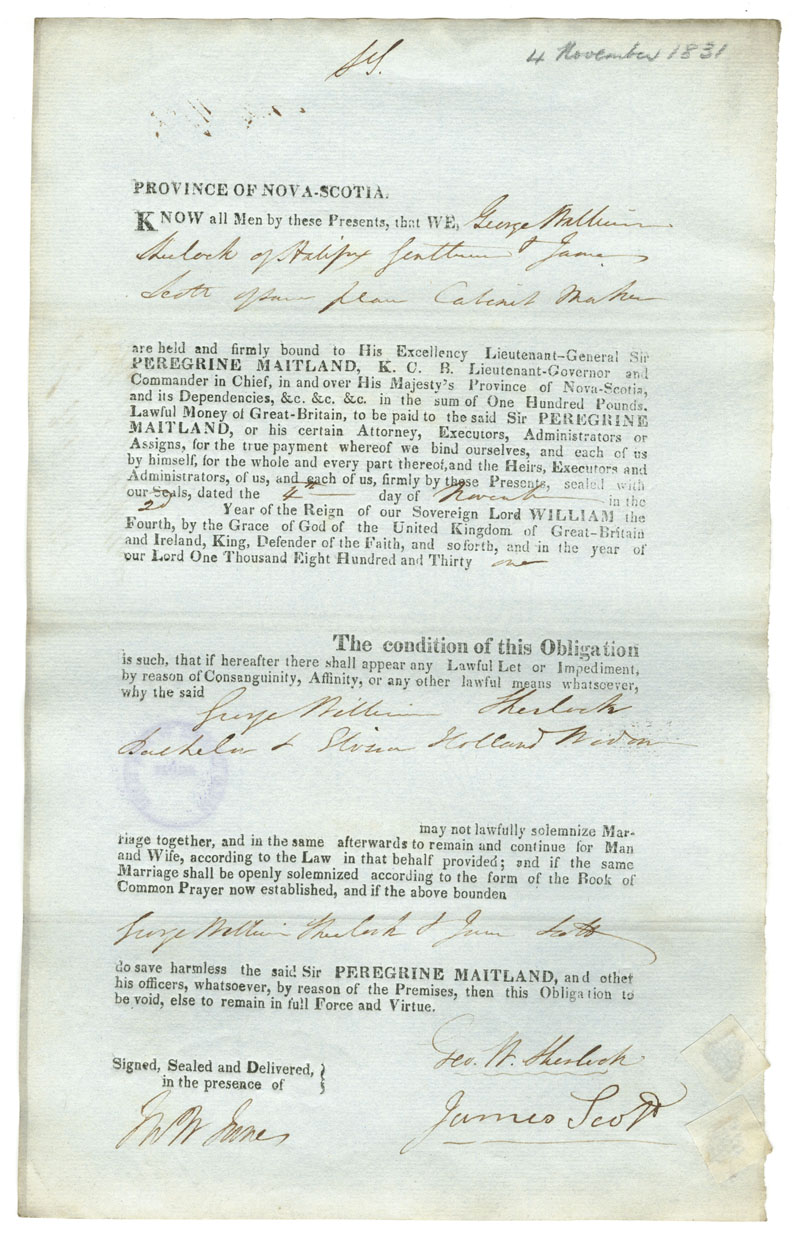 4 November 1831
PROVINCE OF NOVA-SCOTIA.
KNOW all Men by these Presents, that WE, George William
Sherlock of Halifax Gentleman & James
Scott of same place Cabinet Maker
are held and firmly bound to His Excellency Lieutenant-General Sir
PEREGRINE MAITLAND, K. C. B. Lieutenant-Governor and
Commander in Chief, in and over His Majesty's Province of Nova-Scotia,
and its Dependencies, &c. &c. &c. in the sum of One Hundred Pounds,
Lawful Money of Great-Britain, to be paid to the said Sir PEREGRINE
MAITLAND, or his certain Attorney, Executors, Administrators or
Assigns, for the true payment whereof we bind ourselves, and each of us
by himself, for the whole and every part thereof, and the Heirs, Executors and
Administrators, of us, and each of us, firmly by these Presents, sealed with
our Seals, dated the 4th day of November in the
2d Year of the Reign of our Sovereign Lord WILLIAM the
Fourth, by the Grace of God of the United Kingdom of Great-Britain
and Ireland, King, Defender of the Faith, and so forth, and in the year of
our Lord One Thousand Eight Hundred and Thirty one
The condition of this Obligation
is such, that if hereafter there shall appear any Lawful Let or Impediment,
by reason of Consanguinity, Affinity, or any other lawful means whatsoever,
why the said
George William Sherlock
Bachelor & Holland Widow
may not lawfully solemnize Mar-
riage together, and in the same afterwards to remain and continue for Man
and Wife, according to the Law in that behalf provided; and if the same
Marriage shall be openly solemnized according to the form of the Book of
Common Prayer now established, and if the above bounden
George William Sherlock & James Scott
do save harmless the said Sir PEREGRINE MAITLAND, and other
his officers, whatsoever, by reason of the Premises, then this Obligation to
be void, else to remain in full Force and Virtue.
Signed, Sealed and Delivered,
in the presence of
Geo. W. Sherlock
James Scott